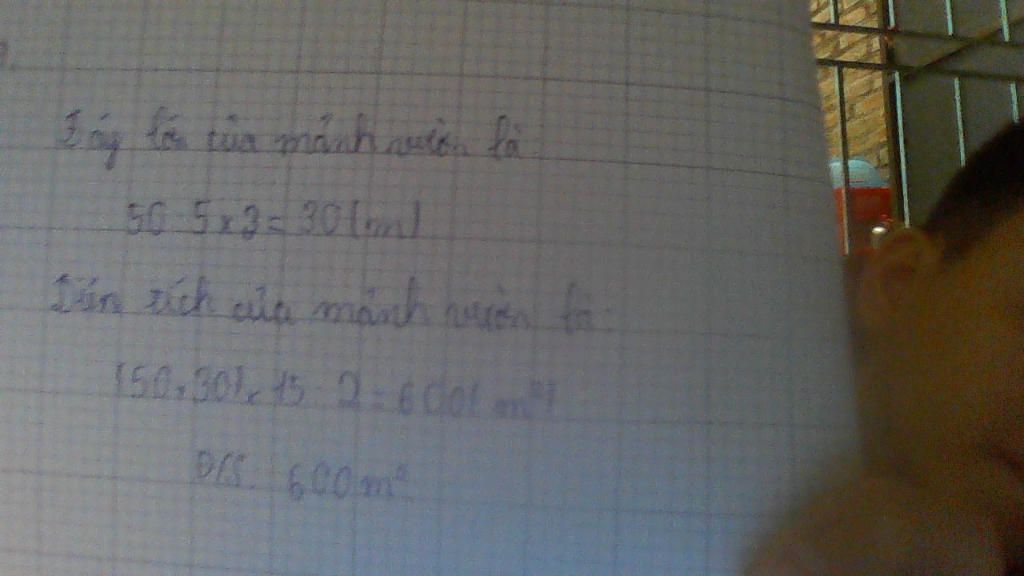 Đáy lớn của mảnh vườn là:
50 : 5 x 3 = 30 (m)
Diện tích của mảnh vườn là:
(50 + 30) x 15 : 2 = 600 (m²)
Đ/S: 600 m²